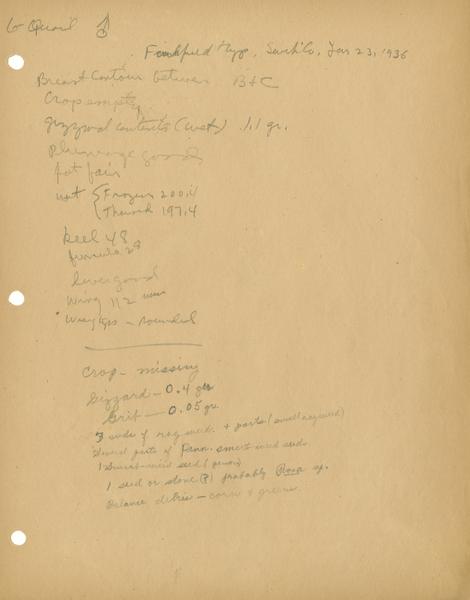 6 Quail ♂
Fairfield Twp, Sauk Co, Jan 23, 1936
Breast contour between B + C
Crop empty
gizzard contents (wet) 1.1 gr.
plumage good
fat fair
wgt { Frozen 200.
Thawed 197.4
keel 48
femur 28
liver good
wing 112 mm
wing tips - rounded
Crop - missing
Gizzard - 0.4 grs
Grit - 0.05 gr
3 seeds of ragweed + parts (small ragweed)
Several parts of Penn. smartweed seeds
1 smartweed seed
1 seed or stone (?) probably Rosa sp.
Balance debris - corn + greens